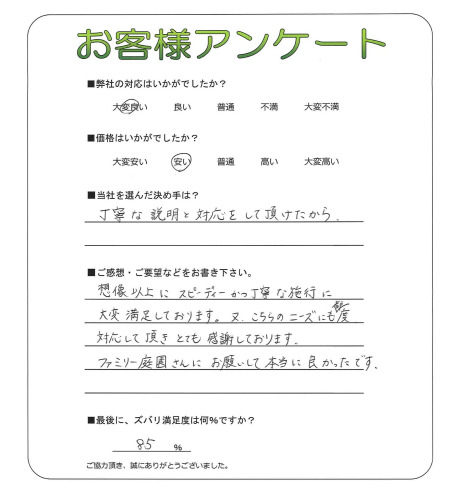 お客様アンケート
■弊社の対応はいかがでしたか？
大変良い 良い 普通 不満 大変不満
■価格はいかがでしたか？
大変安い 安い 普通 高い 大変高い
■当社を選んだ決め手は？
丁寧な説明と対応をして頂けたから。
■ご感想・ご要望などをお書き下さい。
想像以上にスピーディーかつ丁寧な施行に
大変満足しております。又、こちらのニーズにも
対応して頂きとても感謝しております。
ファミリー庭園さんにお願いして本当に良かったです。
■最後に、ズバリ満足度は何%ですか？
85 %
ご協力頂き、誠にありがとうございました。